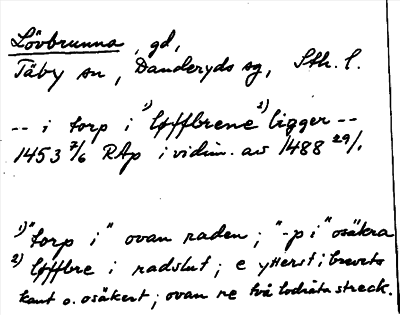 Lövbrunna, gd,
Täby sn, Danderyds sg, Sth. l.
-- i torp i ¹⁾ løffbrene ²⁾ ligger --
1453 7/6 RAp i vidim. av 1488 29/1.
1) "torp i" ovan raden; "-p i" osäkra
2) løffbre i radslut; e ytterst i brevets
kant o. osäkert; ovan re två lodräta streck.